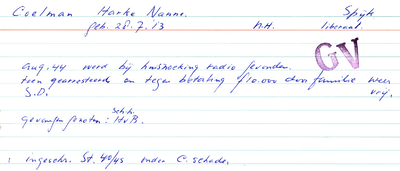 Coelman Harke Nanne. Spijk
geb. 28.7.13 N.H. liberaal
GV
Aug. 44 werd bij huiszoeking radio gevonden.
toen gearresteerd en tegen betaling f 10.000 door familie weer
S.D. vrij.
Sch.h.
Gevangen gezeten: HvB.
ingeschr. St. 40/45 onder C. schade.